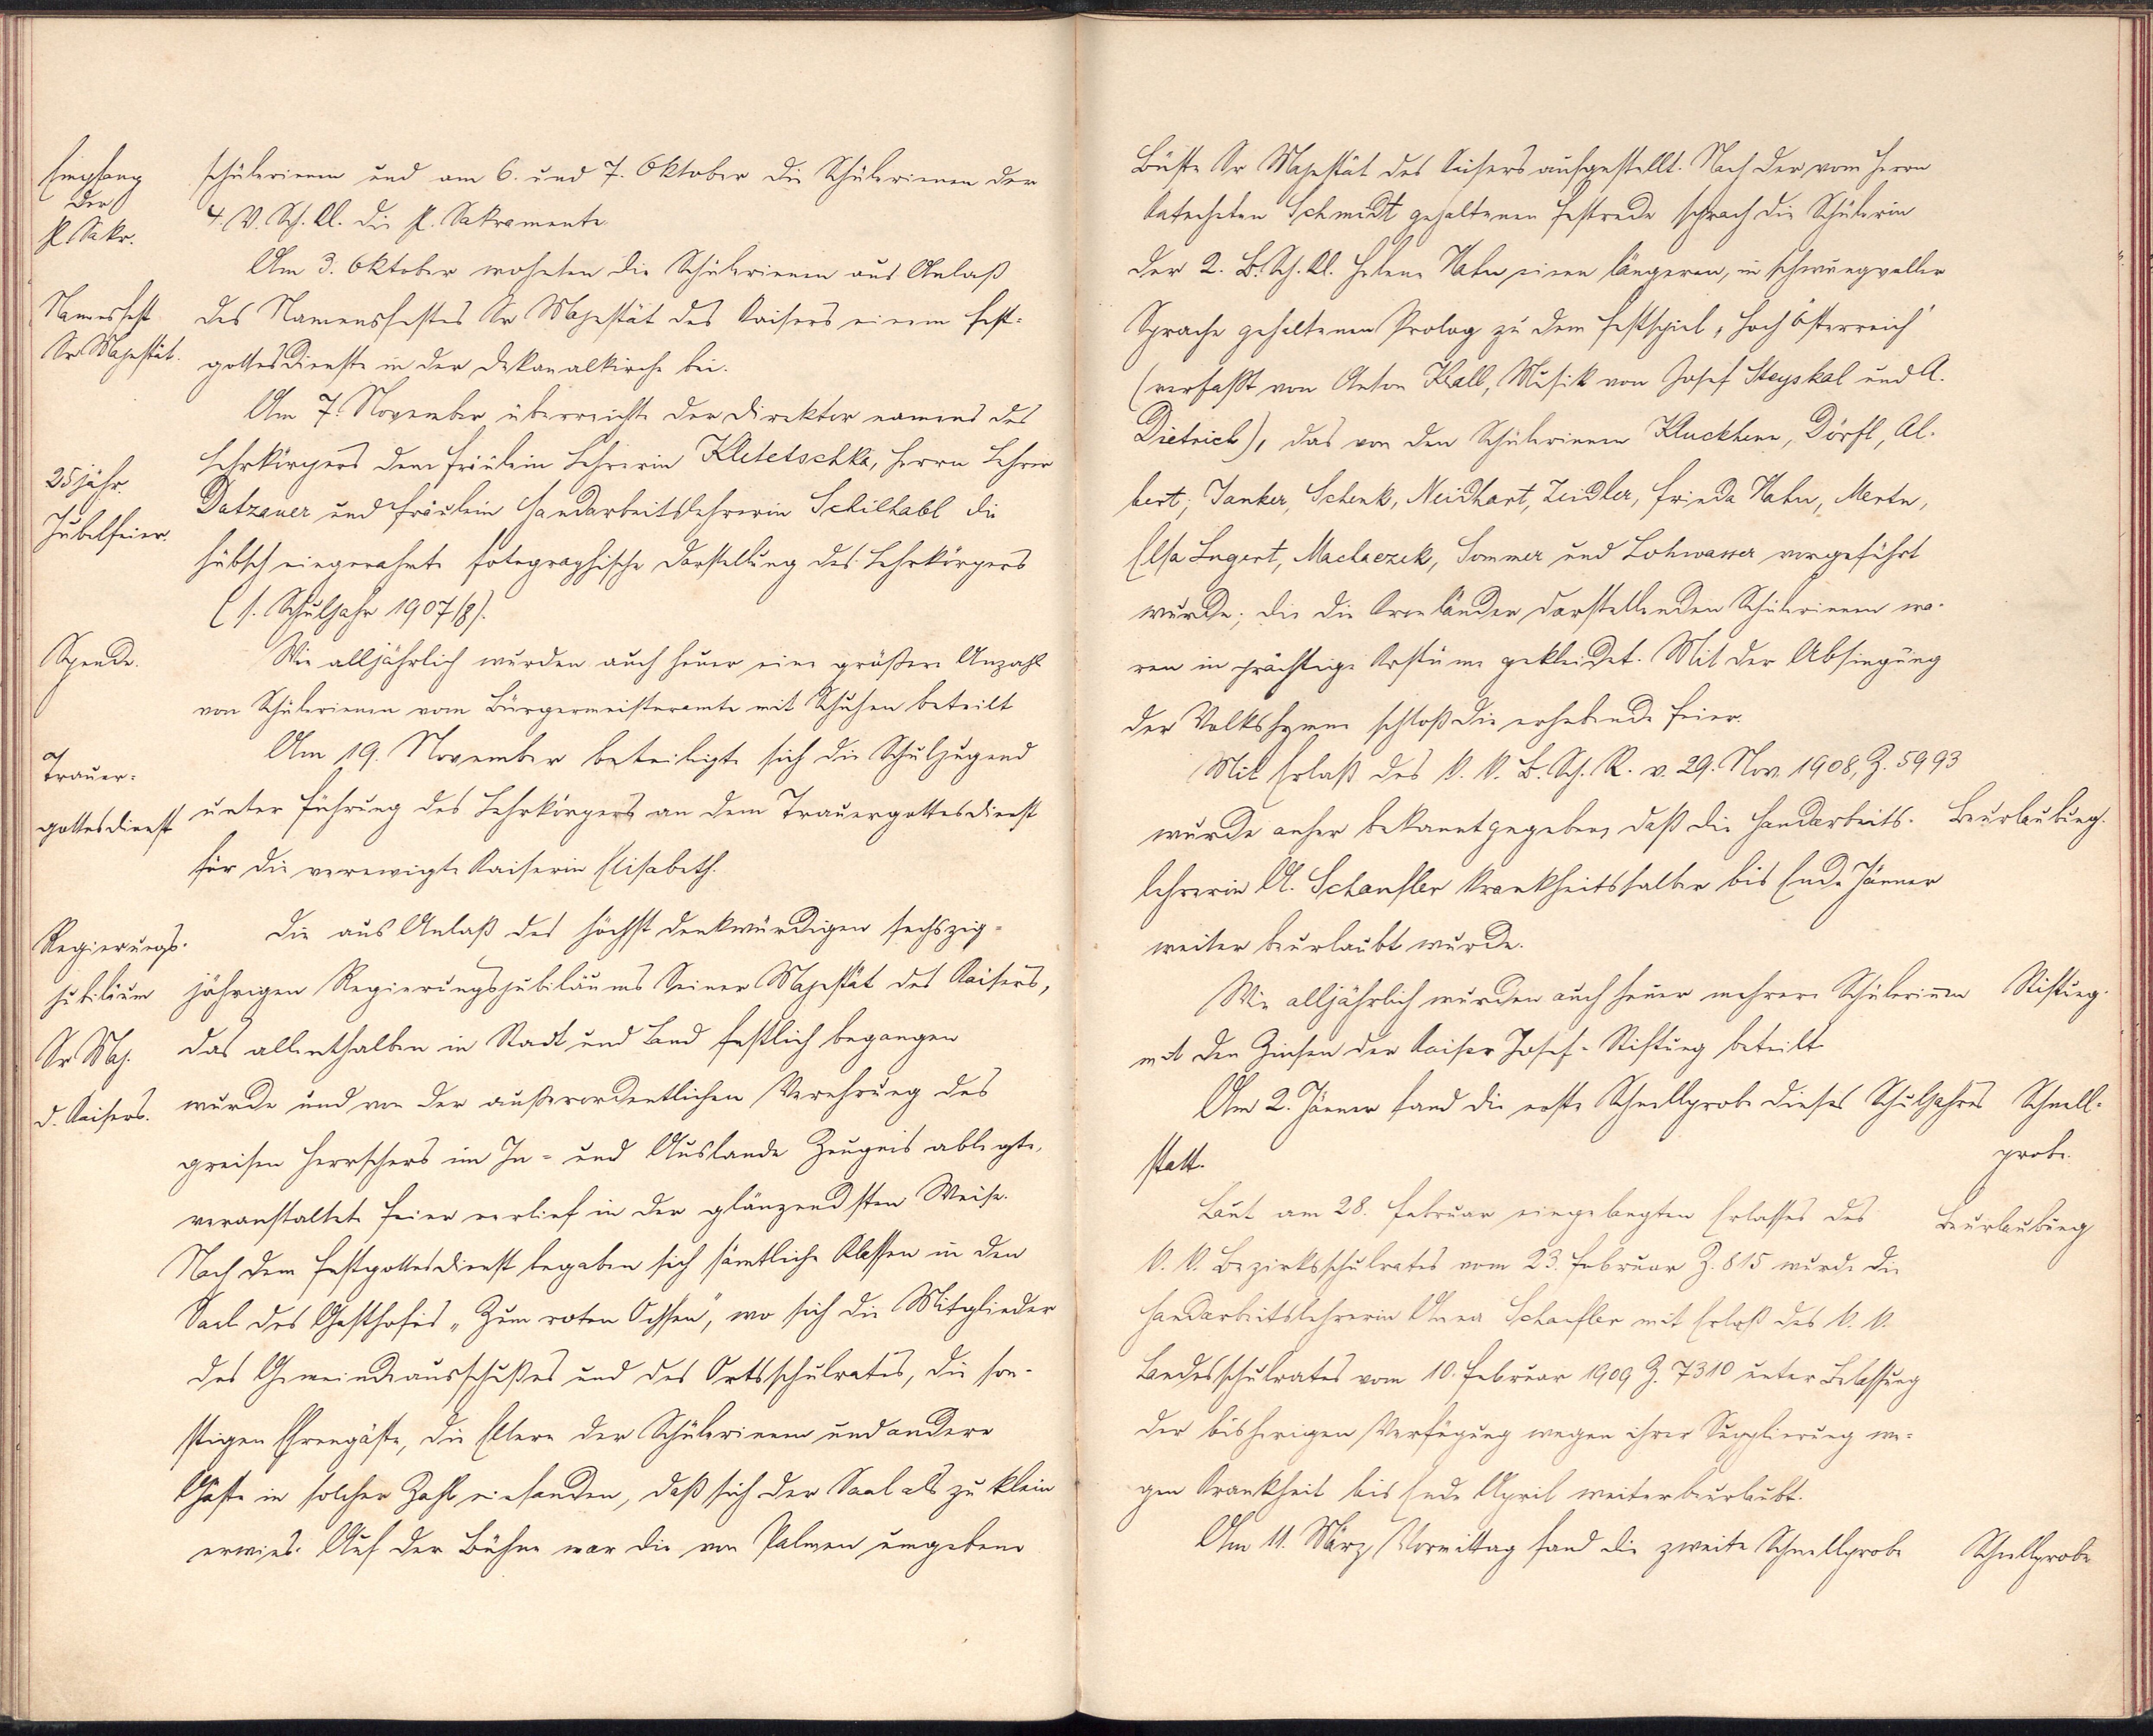 Empfang
der
hl. Sakr.
schülerinnen und am 6. und 7. Oktober die Schülerinnen der
4. V. Sch. Kl. die hl. Sakramente.
Am 3. Oktober wohnten die Schülerinnen aus Anlaß
Namensfest
Sr. Majestät.
des Namensfestes Sr Majestät des Kaisers einem Fest-
gottesdienste in der Dekanalkirche bei.
Am 7. November überreichte der Direktor namens des
25 jähr.
Jubelfeier.
Lehrkörpers dem Fräulein Lehrerin Kletetschka, Herrn Lehrer
Datzauer und Fräulein Handarbeitslehrerin Schilhabl die
hübsch eingerahmte fotographische Darstellung des Lehrkörpers
(s. Schuljahr 1907/8).
Spende.
Wie alljährlich wurden auch heuer eine größere Anzahl
von Schülerinnen vom Bürgermeisteramte mit Schuhen beteilt
Trauer-
gottesdienst
Am 19. November beteiligte sich die Schuljugend
unter Führung des Lehrkörpers an dem Trauergottesdienst
für die verewigte Kaiserin Elisabeth.
Regierungs-
jubiläum
Sr Maj.
d. Kaisers.
Die aus Anlaß des höchst denkwürdigen sechszig-
jährigen Regierungsjubiläums Seiner Majestät des Kaisers,
das allenthalben in Stadt und Land festlich begangen
wurde und von der außerordentlichen Verehrung des
greisen Herrschers im In- und Auslande Zeugnis ablegte,
veranstaltete Feier verlief in der glänzendsten Weise.
Nach dem Festgottesdienst begaben sich sämtliche Klassen in den
Saal des Gasthofes „Zum roten Ochsen", wo sich die Mitglieder
des Gemeindeausschußes und des Ortsschulrates, die son-
stigen Ehrengäste, die Eltern der Schülerinnen und andere
Gäste in solcher Zahl einfanden, daß sich der Saal als zu klein
erwies. Auf der Bühne war die von Palmen umgebene
Büste Sr Majestät des Kaisers aufgestellt. Nach der vom Herrn
Katecheten Schmidt gehaltenen Festrede sprach die Schülerin
der 2. B. Sch. Kl. Helene Hahn einen längeren, in schwungvoller
Sprache gehaltenen Prolog zu dem Festspiel „Hoch Österreich"
(verfaßt von Anton Krall, Musik von Josef Steyskal und A.
Dietrich), das von den Schülerinnen Kluckhenn, Dörfl, Al-
bert, Janker, Schenk, Neidhart, Zeidler, Frieda Hahn, Mertn,
Elsa Lugert, Machaczek, Sommer und Lohwasser vorgeführt
wurde; die die Kronländer darstellenden Schülerinnen wa-
ren in prächtige Kostüme gekleidet. Mit der Absingung
der Volkshymne schloß die erhebende Feier.
Mit Erlaß des k. k. B. Sch. R. v. 29. Nov. 1908, Z. 5993
wurde anher bekanntgegeben, daß die Handarbeits-
Beurlaubung.
lehrerin A. Schaufler krankheitshalber bis Ende Jänner
weiter beurlaubt wurde.
Wie alljährlich wurden auch heuer mehrere Schülerinnen
Stiftung.
mit den Zinsen der Kaiser Josef-Stiftung beteilt.
Am 2. Jänner fand die erste Schnellprobe dieses Schuljahres
statt.
Schnell-
probe.
Laut am 28. Februar eingelangten Erlasses des
Beurlaubung
k. k. Bezirksschulrates vom 23. Februar Z. 815 wurde die
Handarbeitslehrerin Anna Schaufler mit Erlaß des k. k.
Landesschulrates vom 10. Februar 1909 Z. 7310 unter Belassung
der bisherigen Verfügung wegen ihrer Supplierung we-
gen Krankheit bis Ende April weiterbeurlaubt.
Am 11. März Vormittag fand die zweite Schnellprobe
Schnellprobe